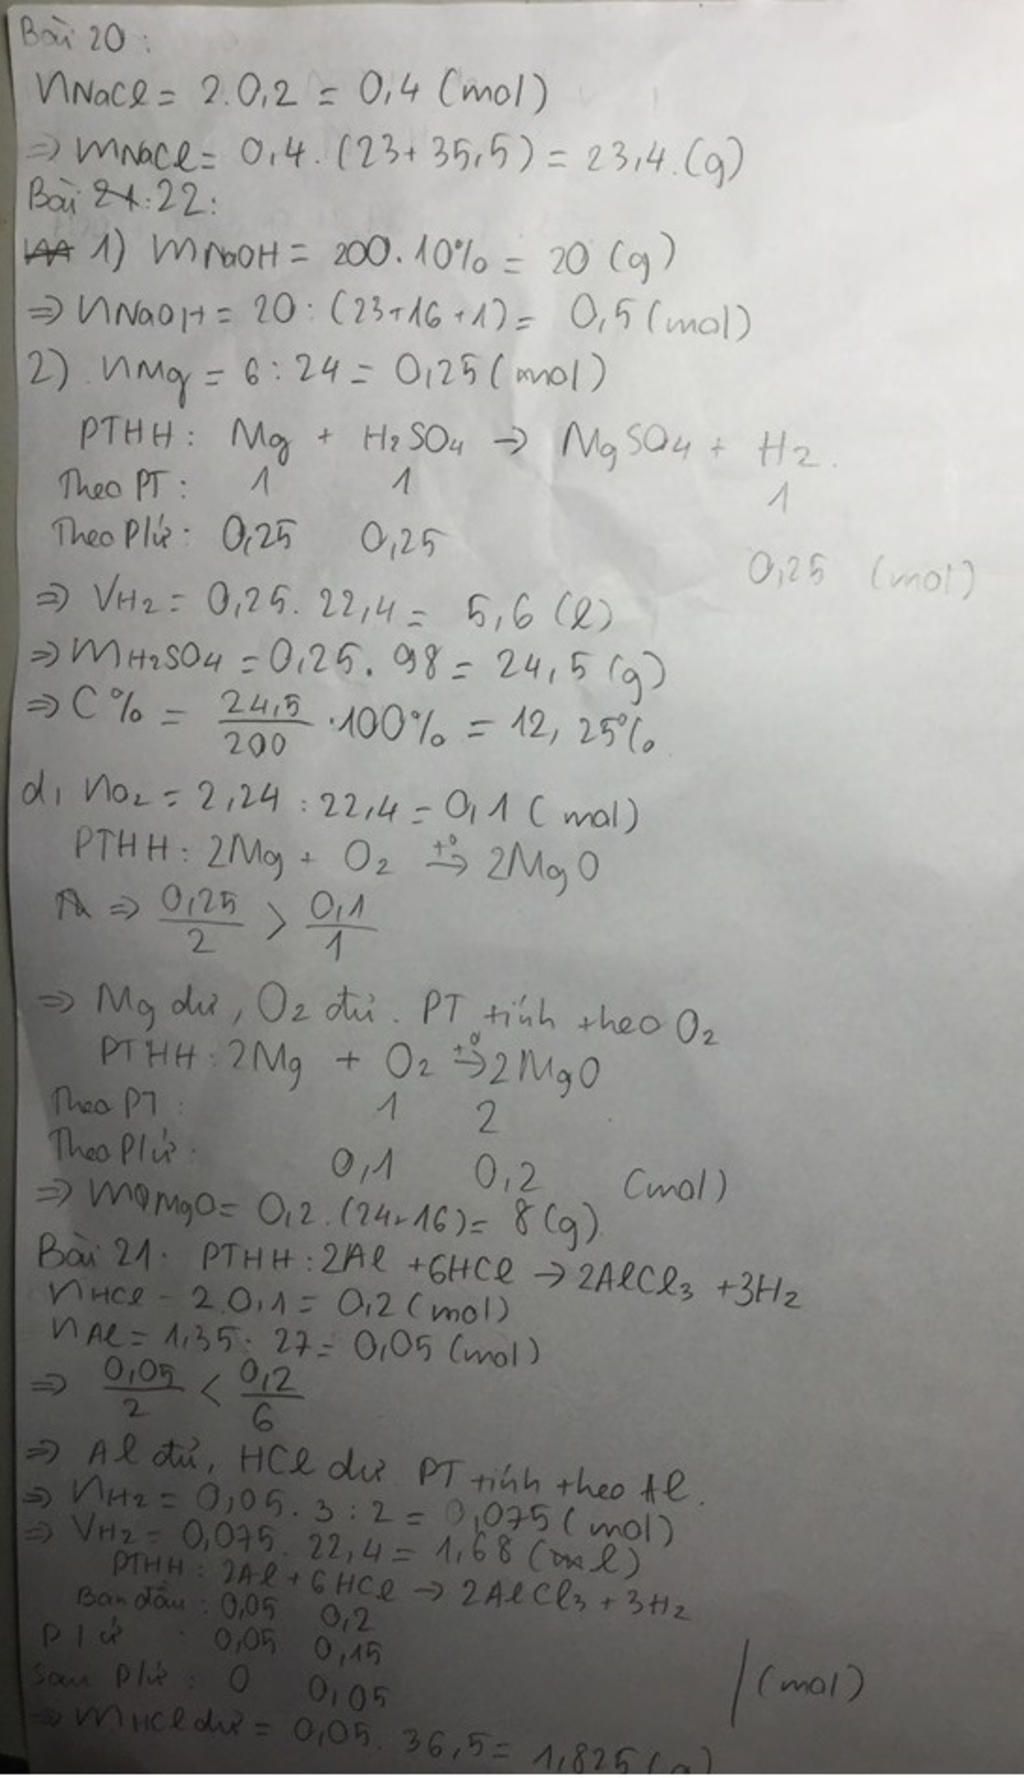 Bài 20:
nNaCl = 2.0,2 = 0,4 (mol)
=> mNaCl = 0,4.(23+35,5) = 23,4.(g)
Bài 21:22:
1) mNaOH = 200.10% = 20 (g)
=> nNaOH = 20:(23+16+1) = 0,5 (mol)
2) nMg = 6:24 = 0,25 (mol)
PTHH: Mg + H2SO4 → MgSO4 + H2.
Theo PT: 1 1 1
Theo P/ứ: 0,25 0,25 0,25 (mol)
=> VH2 = 0,25.22,4 = 5,6 (l)
=> mH2SO4 = 0,25.98 = 24,5 (g)
=> C% = 24,5/200 .100% = 12,25%
d, nO2 = 2,24:22,4 = 0,1 (mol)
PTHH: 2Mg + O2 t°→ 2MgO
=> 0,25/2 > 0,1/1
=> Mg dư, O2 đủ. PT tính theo O2
PTHH: 2Mg + O2 t°→ 2MgO
Theo PT: 1 2
Theo P/ứ: 0,1 0,2 (mol)
=> mMgO = 0,2.(24+16) = 8 (g)
Bài 21. PTHH: 2Al + 6HCl → 2AlCl3 + 3H2
nHCl - 2.0,1 = 0,2 (mol)
nAl = 1,35:27 = 0,05 (mol)
=> 0,05/2 < 0,2/6
=> Al đủ, HCl dư PT tính theo Al.
=> nH2 = 0,05.3:2 = 0,075 (mol)
=> VH2 = 0,075.22,4 = 1,68 (l)
PTHH: 2Al + 6HCl → 2AlCl3 + 3H2
Ban đầu: 0,05 0,2
P/ứ 0,05 0,15
Sau P/ứ: 0 0,05 /(mol)
=> mHCl dư = 0,05.36,5 = 1,825 (g)